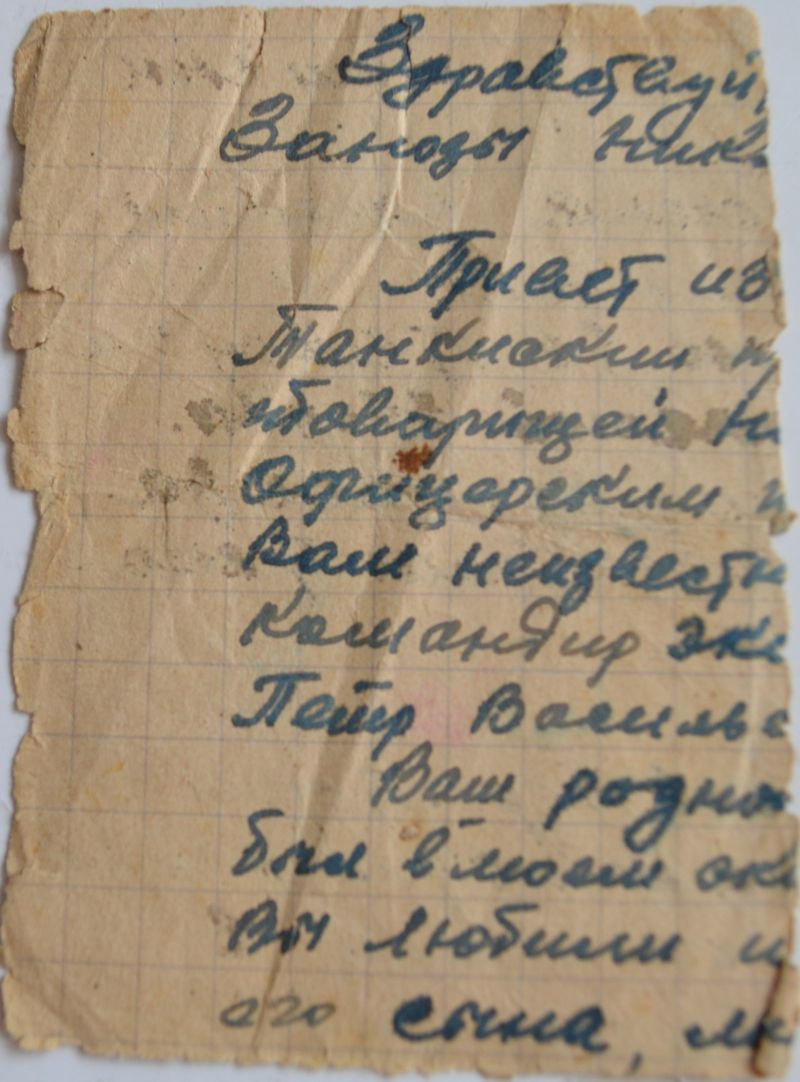 Здравствуй,
Заноды Ник
Привет из
Танкиский п
товарищей Н
Офицерским п
Вам неизвестн
Командир эки
Петр Василье
Ваш родно
был в моем эки
Вы любили и
его сына, мо